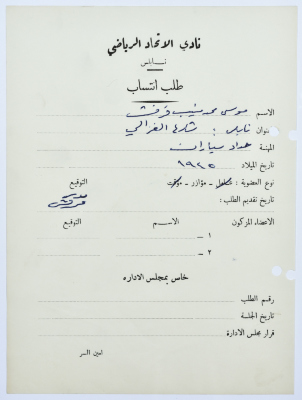 نادي الاتحاد الرياضي
نابلس
طلب انتساب
الاسم موسى محمد شبيب قرقش
عنوان نابلس : شارع الغزالي
المهنة حداد سيارات
تاريخ الميلاد ١٩٣٥
نوع العضوية : عامل - مؤازر - مؤقت التوقيع
تاريخ تقديم الطلب :
الاعضاء المزكون الاسم التوقيع
١ –
٢ –
خاص بمجلس الاداره
رقم الطلب
تاريخ الجلسة
قرار مجلس الادارة
امين السر